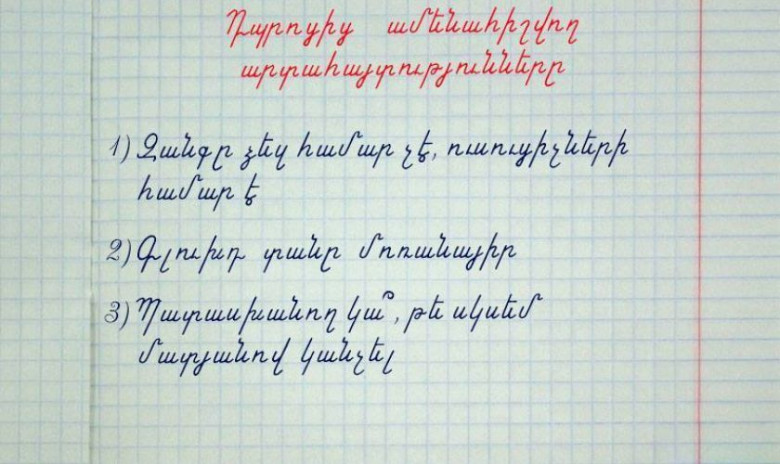 Դպրոցից ամենահիշվող
արտահայտությունները
1) Զանգը ձեզ համար չէ, ուսուցիչների
համար է
2) Գլուխդ տանը մոռանայիր
3) Պատասխանող կա՞, թե սկսեմ
մատյանով կանչել